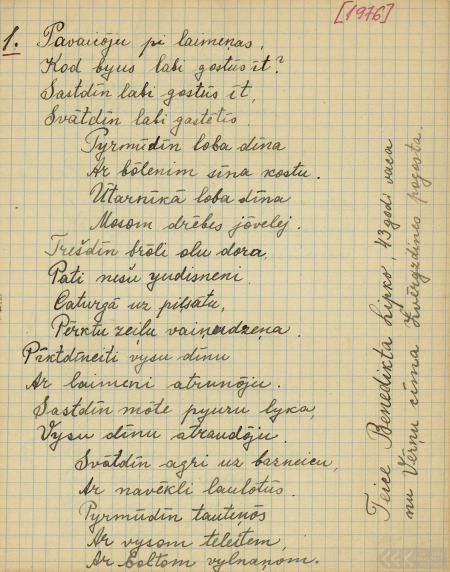 [1976]
1. Pavaicoju pi laimeņas,
Kod byus labi gostūs īt?
Sastdīn labi gostūs īt,
Svātdīn labi gastētis.
Pyrmūdīn loba dīna
Ar bōlenim sīna kostu.
Ūtarnīkā loba dīna
Mosom drēbes jōvelej.
Trešdīn brōli olu dora,
Pati nešu yudisneni.
Caturgā uz piļsātu,
Pērktu zeiļu vaiņudzeņa.
Pīktdīneiti vysu dīnu
Ar laimeni atrunōju.
Sastdīn mōte pyuru lyka,
Vysu dīnu atraudōju.
Svātdīn agri uz bazneicu,
Ar navēkli laulotūs.
Pyrmūdīn tauteņōs
Ar vysom teleitem,
Ar boltom vylnaņom.
Teice Benedikta Lipko, 43 godi vaca
nu Vērņu cīma Zvērgzdines pogosta.